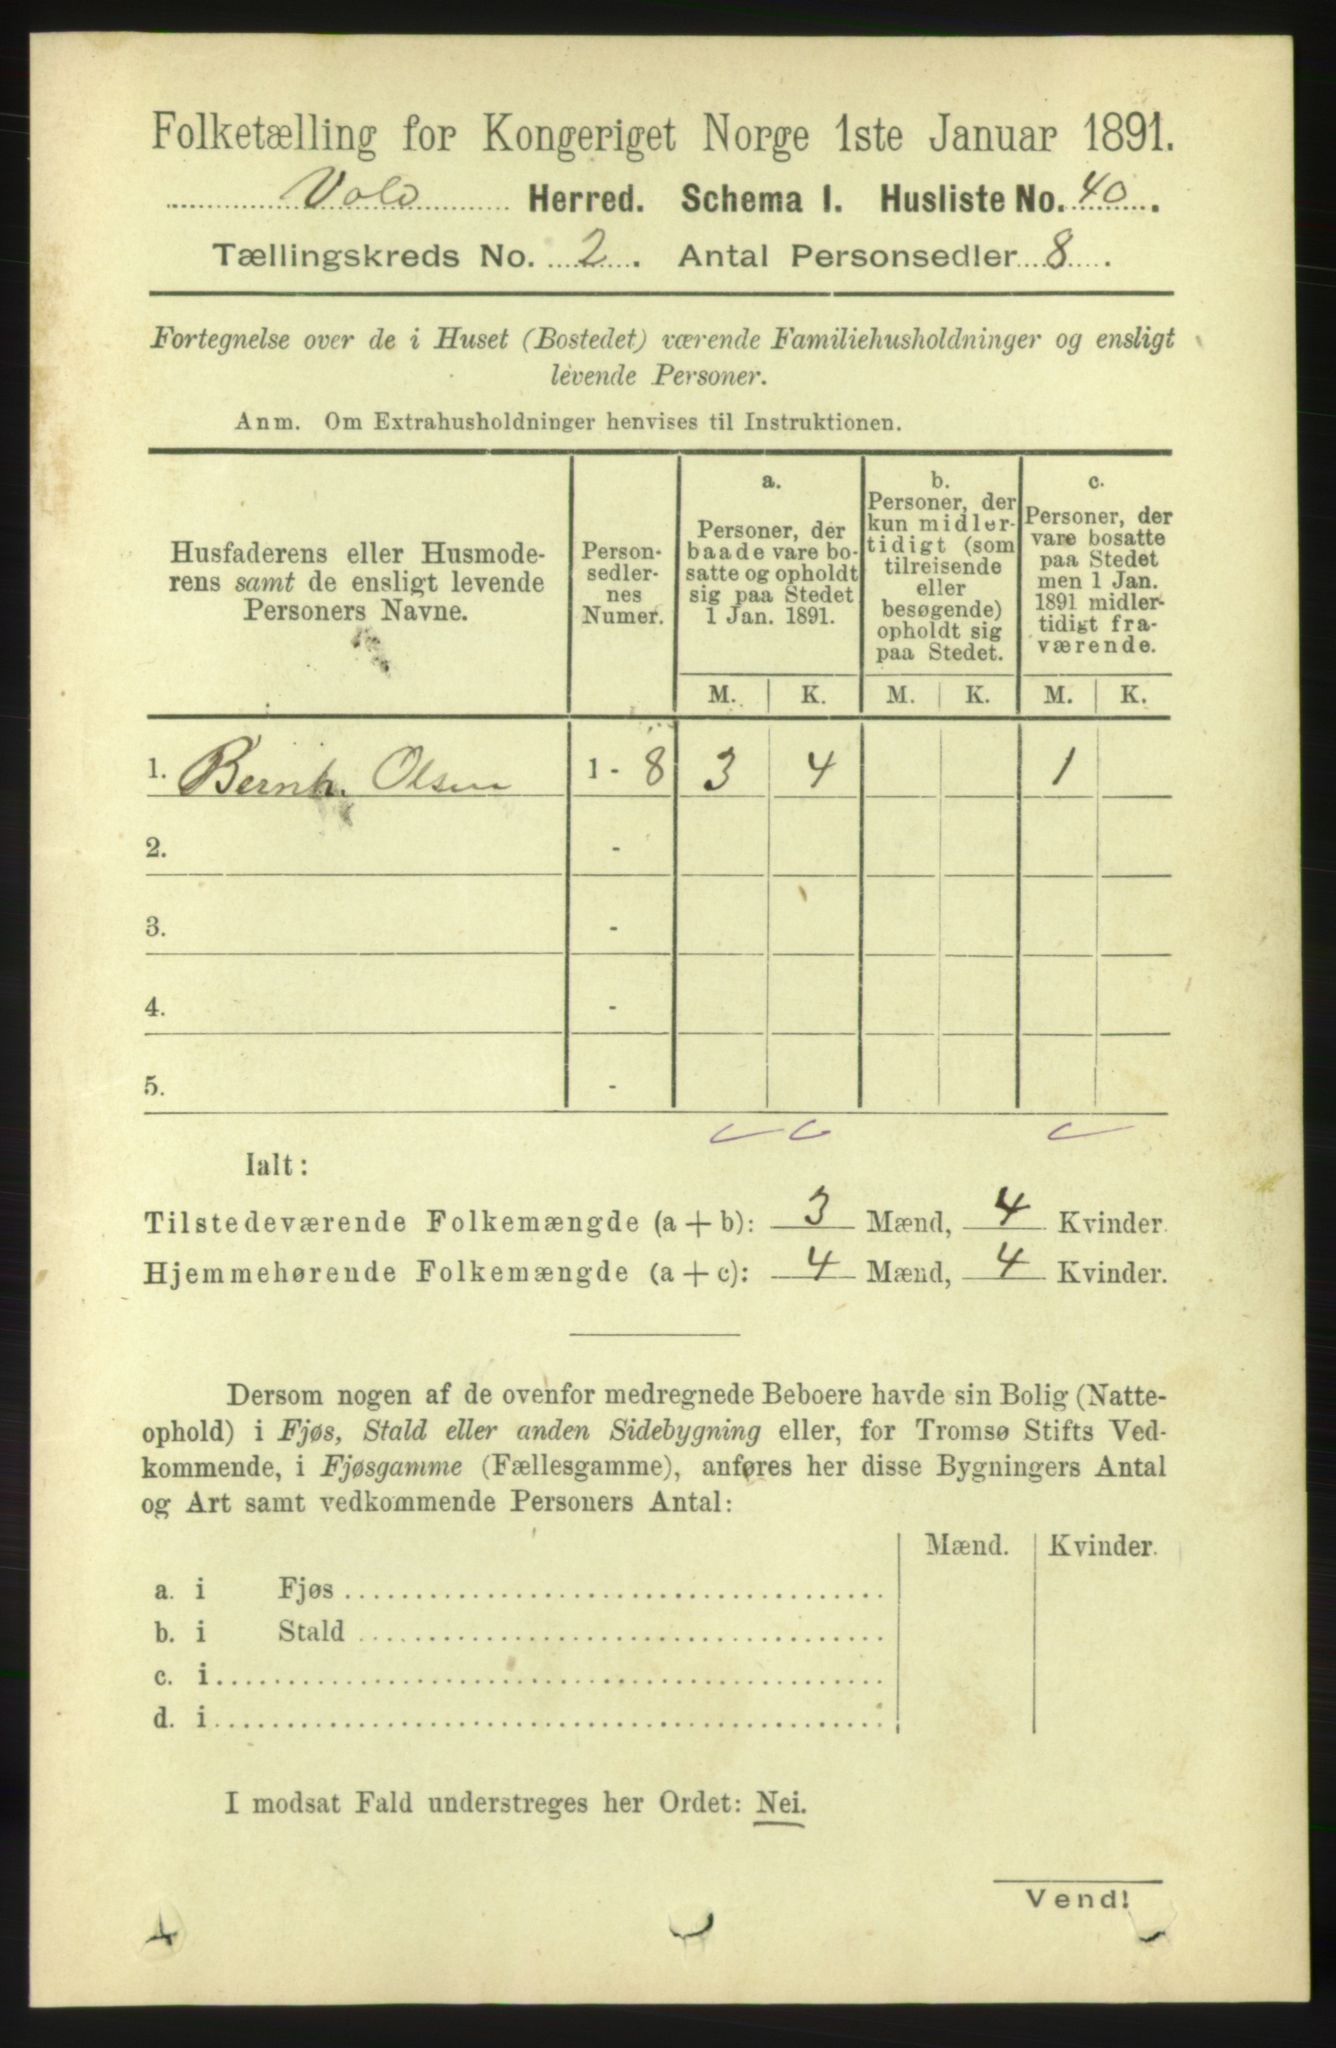 Folketælling for Kongeriget Norge 1ste Januar 1891.
Vold Herred. Schema I. Husliste No. 40.
Tællingskreds No. 2. Antal Personsedler 8.
Fortegnelse over de i Huset (Bostedet) værende Familiehusholdninger og ensligt
levende Personer.
Anm. Om Extrahusholdninger henvises til Instruktionen.
Husfaderens eller Husmode-
rens samt de ensligt levende
Personers Navne.
Person-
sedler-
nes
Numer.
a.
Personer, der
baade vare bo-
satte og opholdt
sig paa Stedet
1 Jan. 1891.
b.
Personer, der
kun midler-
tidigt (som
tilreisende
eller
besøgende)
opholdt sig
paa Stedet.
c.
Personer, der
vare bosatte
paa Stedet
men 1 Jan.
1891 midler-
tidigt fra-
værende.
M. K. M. K. M. K.
1. Bernh. Olsen 1 - 8 3 4 1
2. -
3. -
4. -
5. -
Ialt:
Tilstedeværende Folkemængde (a + b): 3 Mænd, 4 Kvinder.
Hjemmehørende Folkemængde (a + c): 4 Mænd, 4 Kvinder.
Dersom nogen af de ovenfor medregnede Beboere havde sin Bolig (Natte-
ophold) i Fjøs, Stald eller anden Sidebygning eller, for Tromsø Stifts Ved-
kommende, i Fjøsgamme (Fællesgamme), anføres her disse Bygningers Antal
og Art samt vedkommende Personers Antal:
Mænd. Kvinder.
a. i Fjøs
b. i Stald
c. i
d. i
I modsat Fald understreges her Ordet: Nei.
Vend!